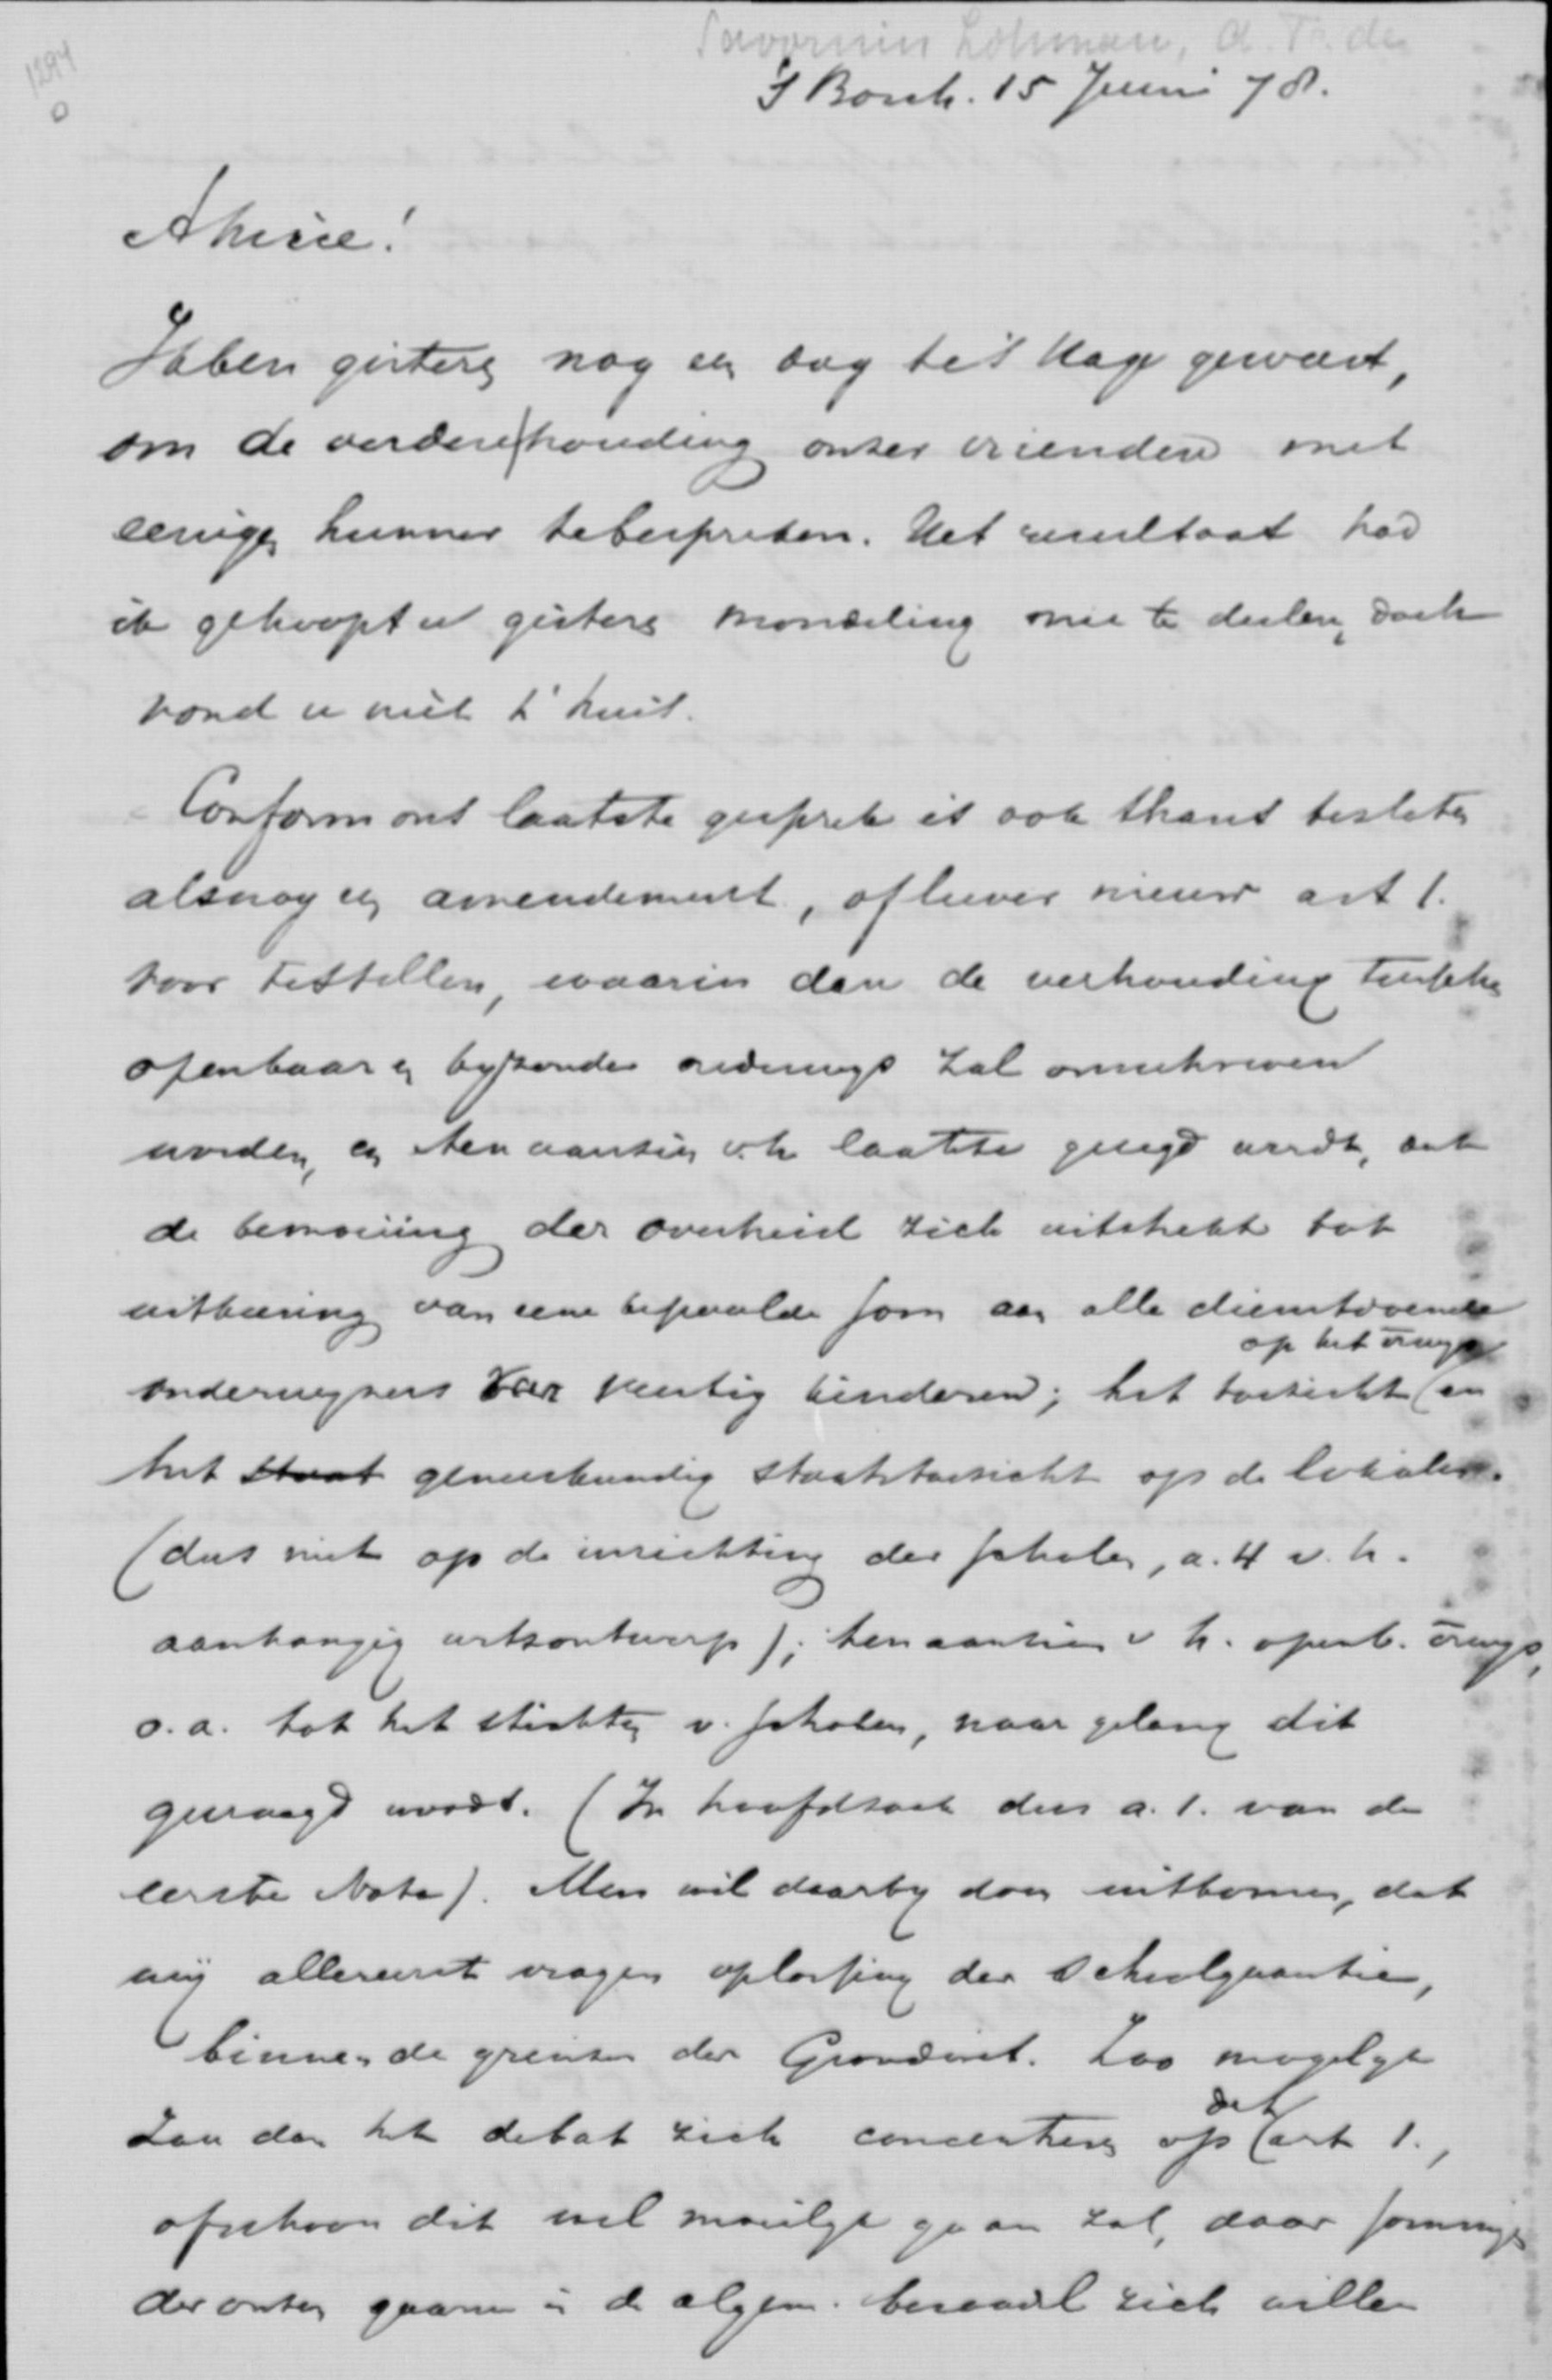 1294
Savornin Lohman, A. F. de
'S Bosch. 15 Juni 78.
Amice!
Ik ben gisteren nog een dag te 's Hage geweest,
om de verdere houding onzer vrienden met
eenigen hunner te bespreken. Het resultaat had
ik gehoopt u gisteren mondeling mee te deelen, doch
vond u niet t' huis.
Conform ons laatste gesprek is ook thans besloten
alsnog een amendement, of liever nieuw art 1.
voor te stellen, waarin dan de verhouding tusschen
openbaar en byzonder onderwys zal omschreven
worden, en ten aanzien v. h. laatste gezegd wordt, dat
de bemoeiing der overheid zich uitstrekt tot
uitkeering van eene bepaalde som aan alle dienstdoende
onderwyzers van veertig kinderen; het toezicht (op het onderwys) en
het staat geneeskundig staatstoezicht op de lokalen.
(dus niet op de inrichting der scholen, a. 4 v. h.
aanhangig wetsontwerp); ten aanzien v. h. openb. onderwys,
o. a. tot het stichten v. scholen, naar gelang dit
gevraagd wordt. (In hoofdzaak dus a. 1. van de
eerste Nota). Men wil daarby doen uitkomen, dat
wij allereerst vragen oplossing der schoolquaestie,
binnen de grenzen der Grondwet. Zoo mogelyk
zou dan het debat zich concentreren op dat art 1.,
ofschoon dit wel moeilyk gaan zal, daar sommigen
der onzen gaarne in de algem. beraadsl zich willen